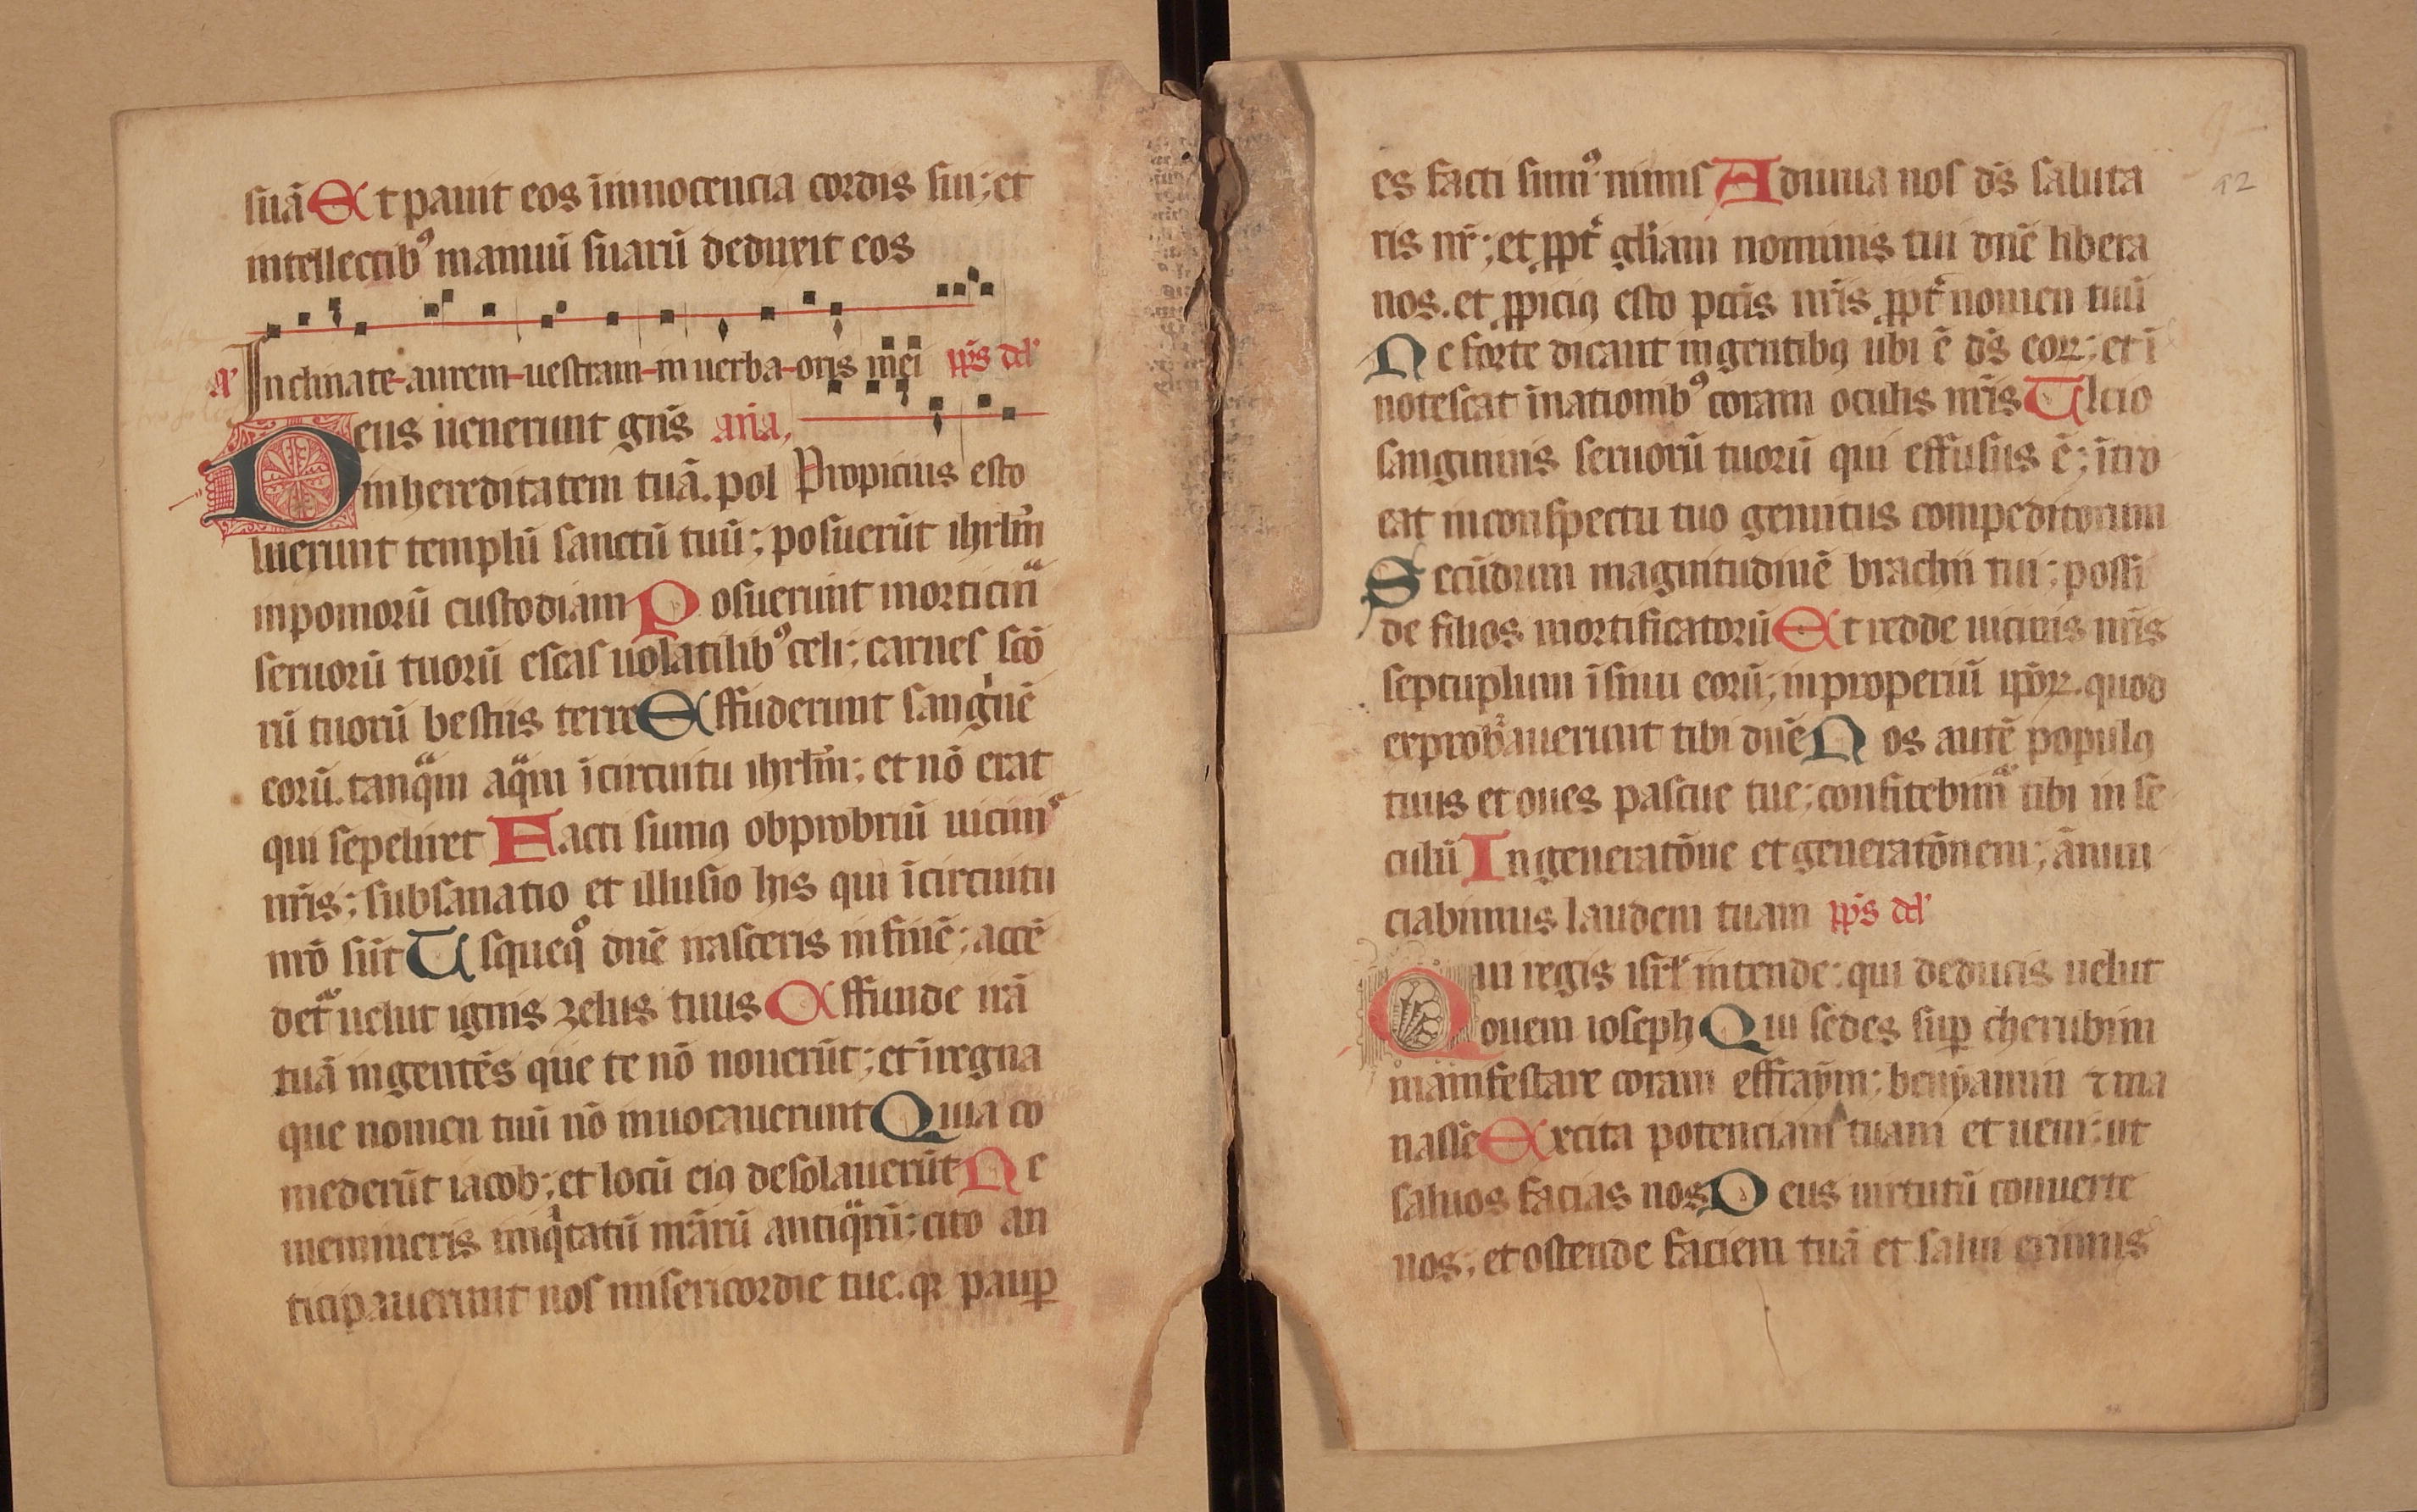 suā Et pauit eos īnnocencia cordis sui; et
intellectib⁹ manuū suarū deduxit eos
Inclinate aurem uestram in uerba oris mei p̄s dd'
Deus uenerunt gn̄s
in hereditatem tuā. pol Propicius esto
luerunt templū sanctū tuū; posuerūt ihrlm̄
inpomorū custodiam Posuerunt morticin̄
seruorū tuorū escas uolatilib⁹ celi; carnes scō
rū tuorū bestiis terre Effuderunt sanguinē
eorū. tanqᵃm aqᵃm īcircuitu ihrlm̄; et nō erat
qui sepeliret Facti sumꝰ obprobriū uicin
nr̄is; subsanatio et illusio his qui īcircuitu
nr̄o sūt Usqueqᵒ dn̄e irasceris infinē; accē
det̄ uelut ignis zelus tuus Effunde irā
tuā ingentēs que te nō nouerūt; et īregna
que nomen tuū nō inuocauerunt Quia co
mederūt iacob; et locū eiꝰ desolauerūt Ne
memineris iniqⁱtatū nr̄arū antiqᵃrū; cito an
ticipauerunt nos misericordie tue. qꝛ paup̄
es facti sumꝰ nimis Adiuua nos ds̄ saluta
ris nr̄; et ꝓpt̄ gl̄iam nominis tui dn̄e libera
nos. et ꝓpiciꝰ esto pctīs nr̄is ꝓpt̄ nomen tuū
Ne forte dicant ingentibꝰ ubi ē ds̄ eoꝝ; et ī
notescat īnationib⁹ coram oculis nr̄is Ulcio
sanguinis seruorū tuorū qui effusus ē; ītro
eat inconspectu tuo gemitus compeditorum
Secūdum magnitudinē brachii tui; possi
de filios mortificatorū Et redde uicinis nr̄is
septuplum īsinu eorū; inproperiū ip̄oꝝ. quod
exprobᵃuerunt tibi dn̄e Nos autē populꝰ
tuus et oues pascue tue; confitebim̄ tibi in se
culū In generatōne et generatōnem; ānun
ciabimus laudem tuam p̄s dd'
Qui regis isrl̄ intende; qui deducis uelut
ouem ioseph Qui sedes sup̄ cherubim
manifestare coram effraym; benyamin ⁊ ma
nasse Excita potenciam tuam et ueni; ut
saluos facias nos Deus uirtutū conuerte
nos; et ostende faciem tuā et salui erimus